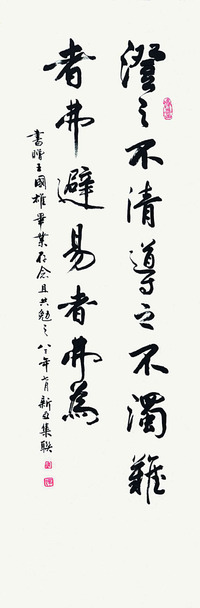 澄之不清導之不濁難
者弗避易者弗為
書贈王國雄畢業存念且共勉之八〇年七月新亞集聯